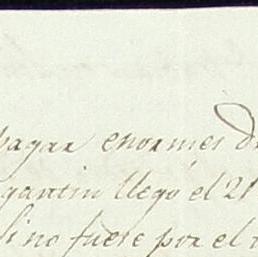 pagar enormes
gantin llegó el 21
si no fuese por el